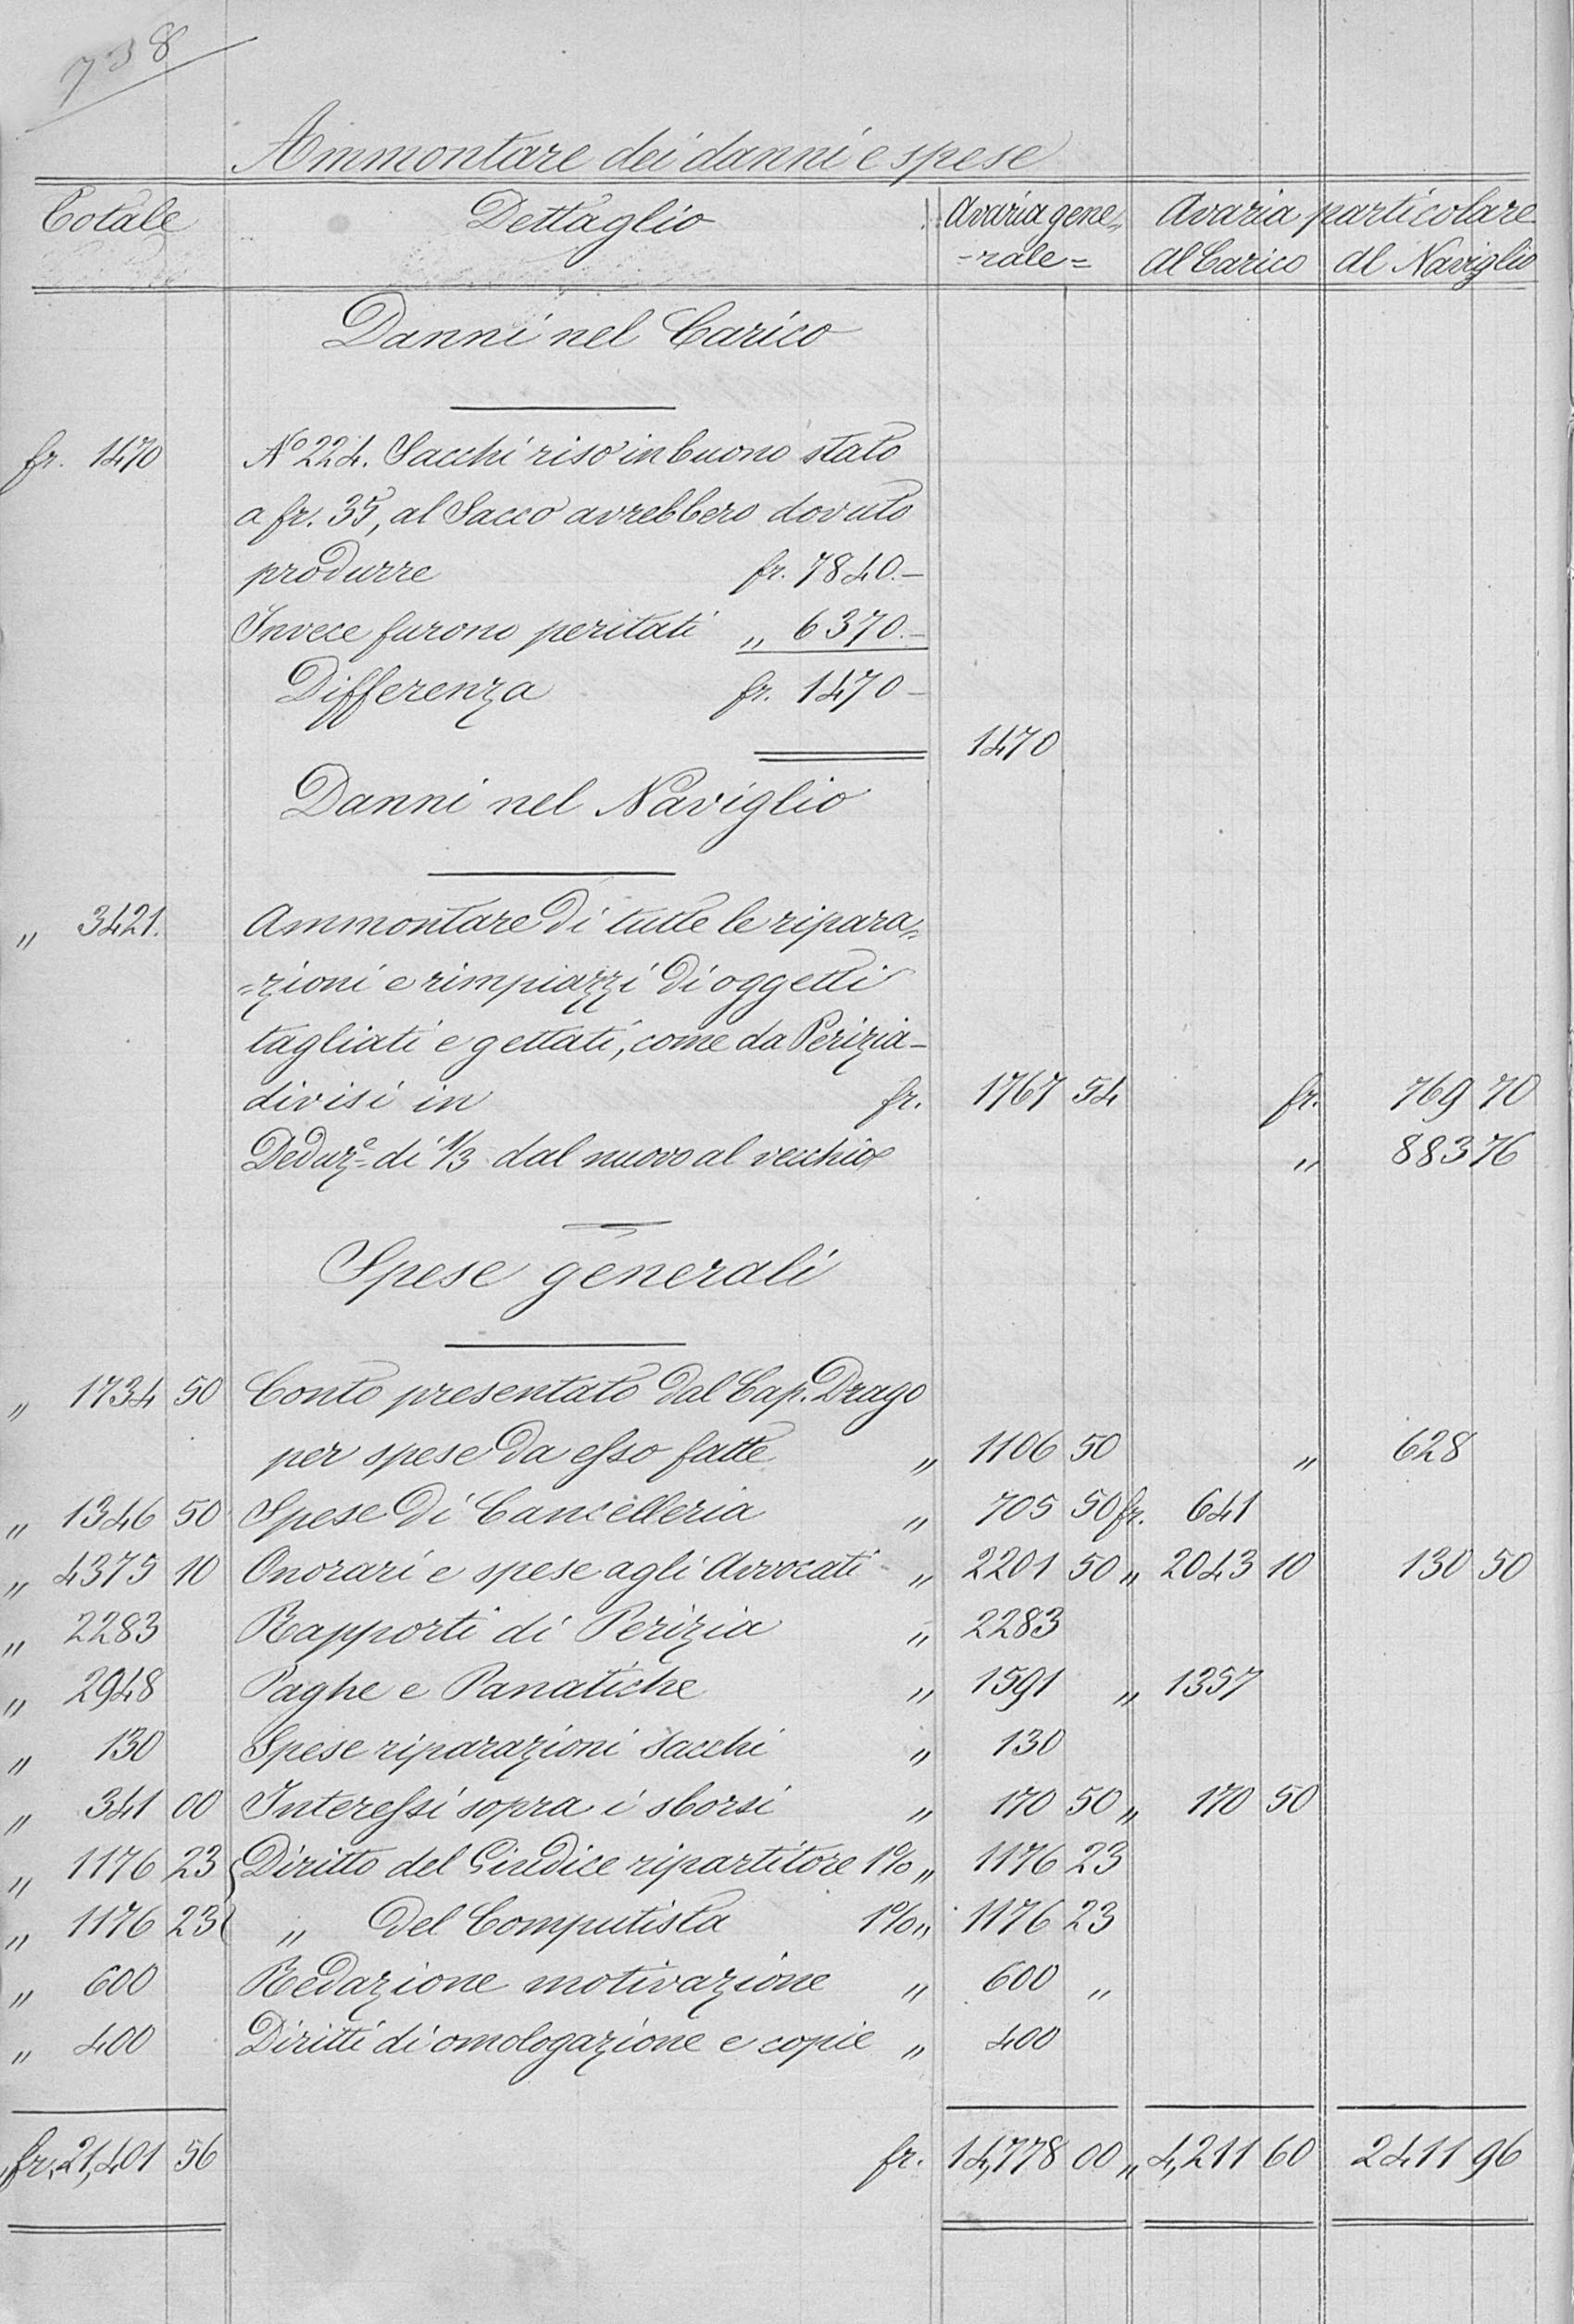 738
Ammontare dei danni e spese
Totale Dettaglio Avaria gene= Avaria particolare
-rale= Al Carico Al Naviglio
Danni nel Carico
fr. 1470 No 224. Sacchi riso in buono stato
a fr. 35, al Sacco avrebbero dovuto
produrre fr. 7840.-
Invece furono peritati „ 6370.-
Differenza fr. 1470-
1470
Danni nel Naviglio
„ 3421. Ammontare di tutte le ripara=
=zioni e rimpiazzi di oggetti
tagliati e gettati, come da Perizia-
divisi in fr. 1767 54 fr. 769 70
Deduze= di 1/3 dal nuovo al vecchio „ 883 76
Spese generali
„ 1734 50 Conto presentato dal Cap. Drago
per spese da esso fatte „ 1106 50 „ 628
„ 1346 50 Spese di Cancelleria „ 705 50 fr. 641
„ 4375 10 Onorari e spese agli Avvocati „ 2201 50 „ 2043 10 130 50
„ 2283 Rapporti di Perizia „ 2283
„ 2948 Paghe e Panatiche „ 1591 „ 1357
„ 130 Spese riparazioni sacchi „ 130
„ 341 00 Interessi sopra i sborsi „ 170 50 „ 170 50
„ 1176 23 Diritto del Giudice ripartitore 1% „ 1176 23
„ 1176 23 „ del Computista 1% „ 1176 23
„ 600 Redazione motivazione „ 600 „
„ 400 Diritti di omologazione e copie „ 400
fr. 21,401 56 fr. 14,778 00 „ 4,211 60 2411 96